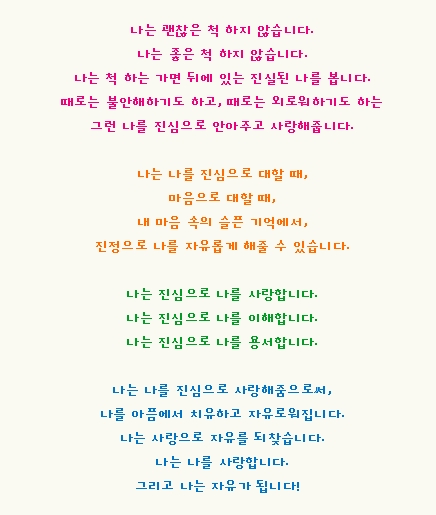 나는 괜찮은 척 하지 않습니다.
나는 좋은 척 하지 않습니다.
나는 척 하는 가면 뒤에 있는 진실된 나를 봅니다.
때로는 불안해하기도 하고, 때로는 외로워하기도 하는
그런 나를 진심으로 안아주고 사랑해줍니다.
나는 나를 진심으로 대할 때,
마음으로 대할 때,
내 마음 속의 슬픈 기억에서,
진정으로 나를 자유롭게 해줄 수 있습니다.
나는 진심으로 나를 사랑합니다.
나는 진심으로 나를 이해합니다.
나는 진심으로 나를 용서합니다.
나는 나를 진심으로 사랑해줌으로써,
나를 아픔에서 치유하고 자유로워집니다.
나는 사랑으로 자유를 되찾습니다.
나는 나를 사랑합니다.
그리고 나는 자유가 됩니다!